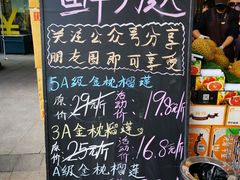 关注公众号分享
朋友圈即可享受
5A级金枕榴莲
原价29元/斤 活动价19.8元/斤
3A金枕榴莲
原价25元/斤 活动价16.8元/斤
A级金枕榴莲